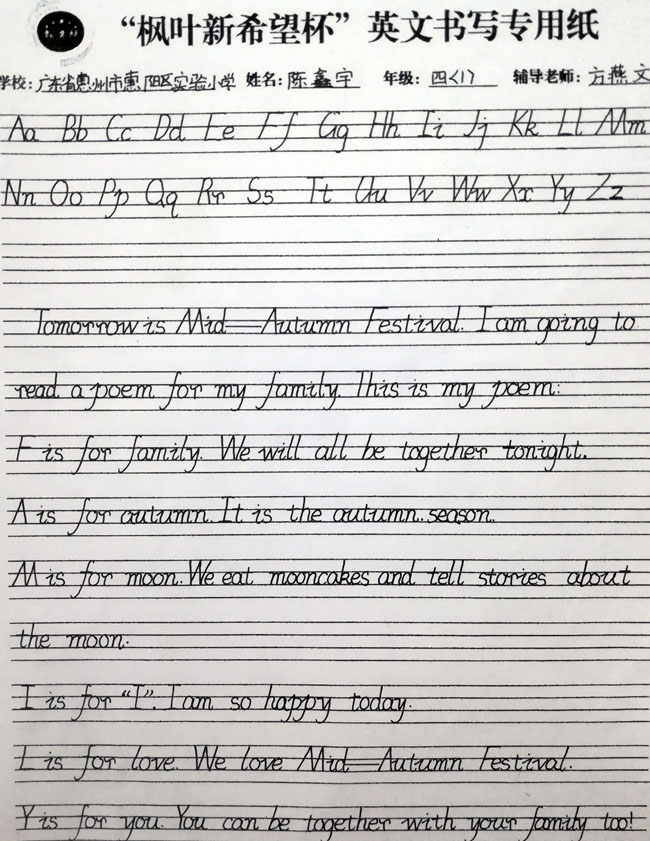 “枫叶新希望杯”英文书写专用纸
学校：广东省惠州市惠阳区实验小学 姓名：陈鑫宇 年级：四〈1〉 辅导老师：方燕文
Aa Bb Cc Dd Ee Ff Gg Hh Ii Jj Kk Ll Mm
Nn Oo Pp Qq Rr Ss Tt Uu Vv Ww Xx Yy Zz
Tomorrow is Mid—Autumn Festival. I am going to
read a poem for my family. This is my poem:
F is for family. We will all be together tonight.
A is for autumn. It is the autumn. season.
M is for moon. We eat mooncakes and tell stories about
the moon.
I is for “I”. I am so happy today.
L is for love. We love Mid—Autumn Festival.
Y is for you. You can be together with your family too!